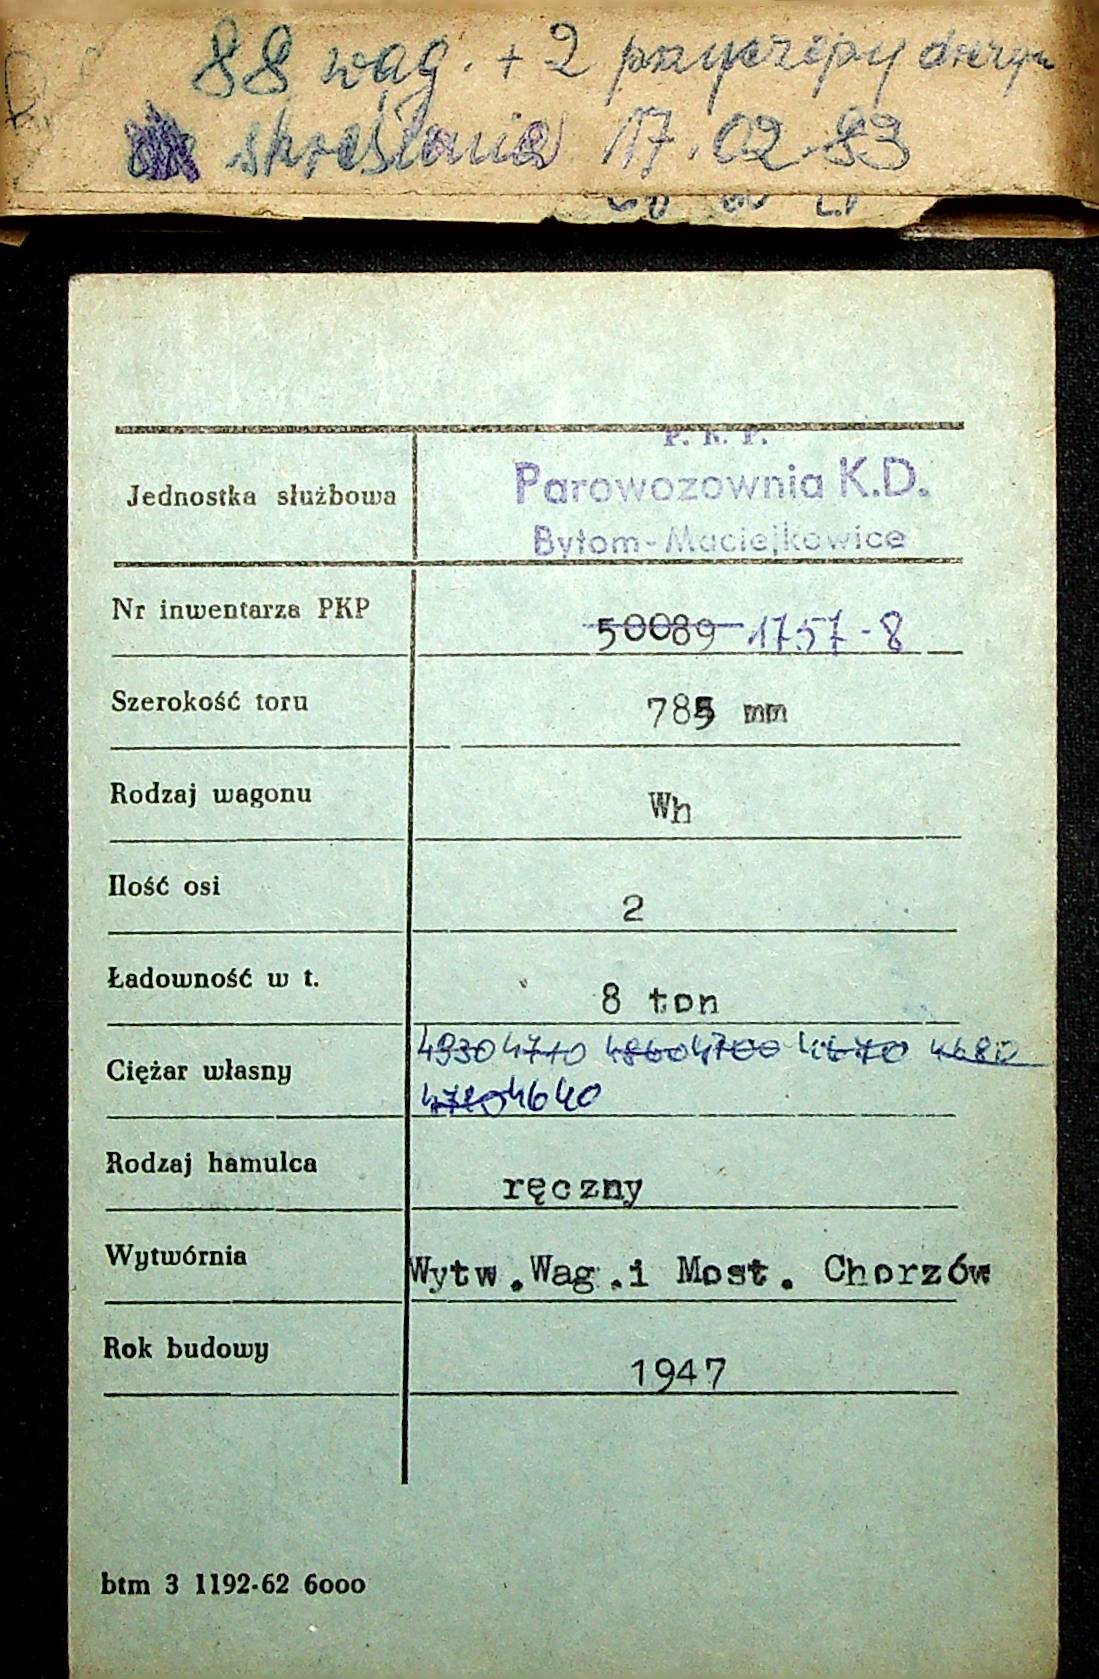 88 wag. + 2 przyczepy
skreślenia 17.02.83
P. K. P.
Parowozownia K.D.
Bytom-Maciejkowice
Jednostka służbowa
Nr inwentarza PKP 50089 1757-8
Szerokość toru 785 mm
Rodzaj wagonu Wh
Ilość osi 2
Ładowność w t. 8 ton
4930 4710 4860 4700 4670 4680
Ciężar własny
4640
Rodzaj hamulca ręczny
Wytwórnia Wytw.Wag.i Most. Chorzów
Rok budowy 1947
btm 3 1192-62 6000